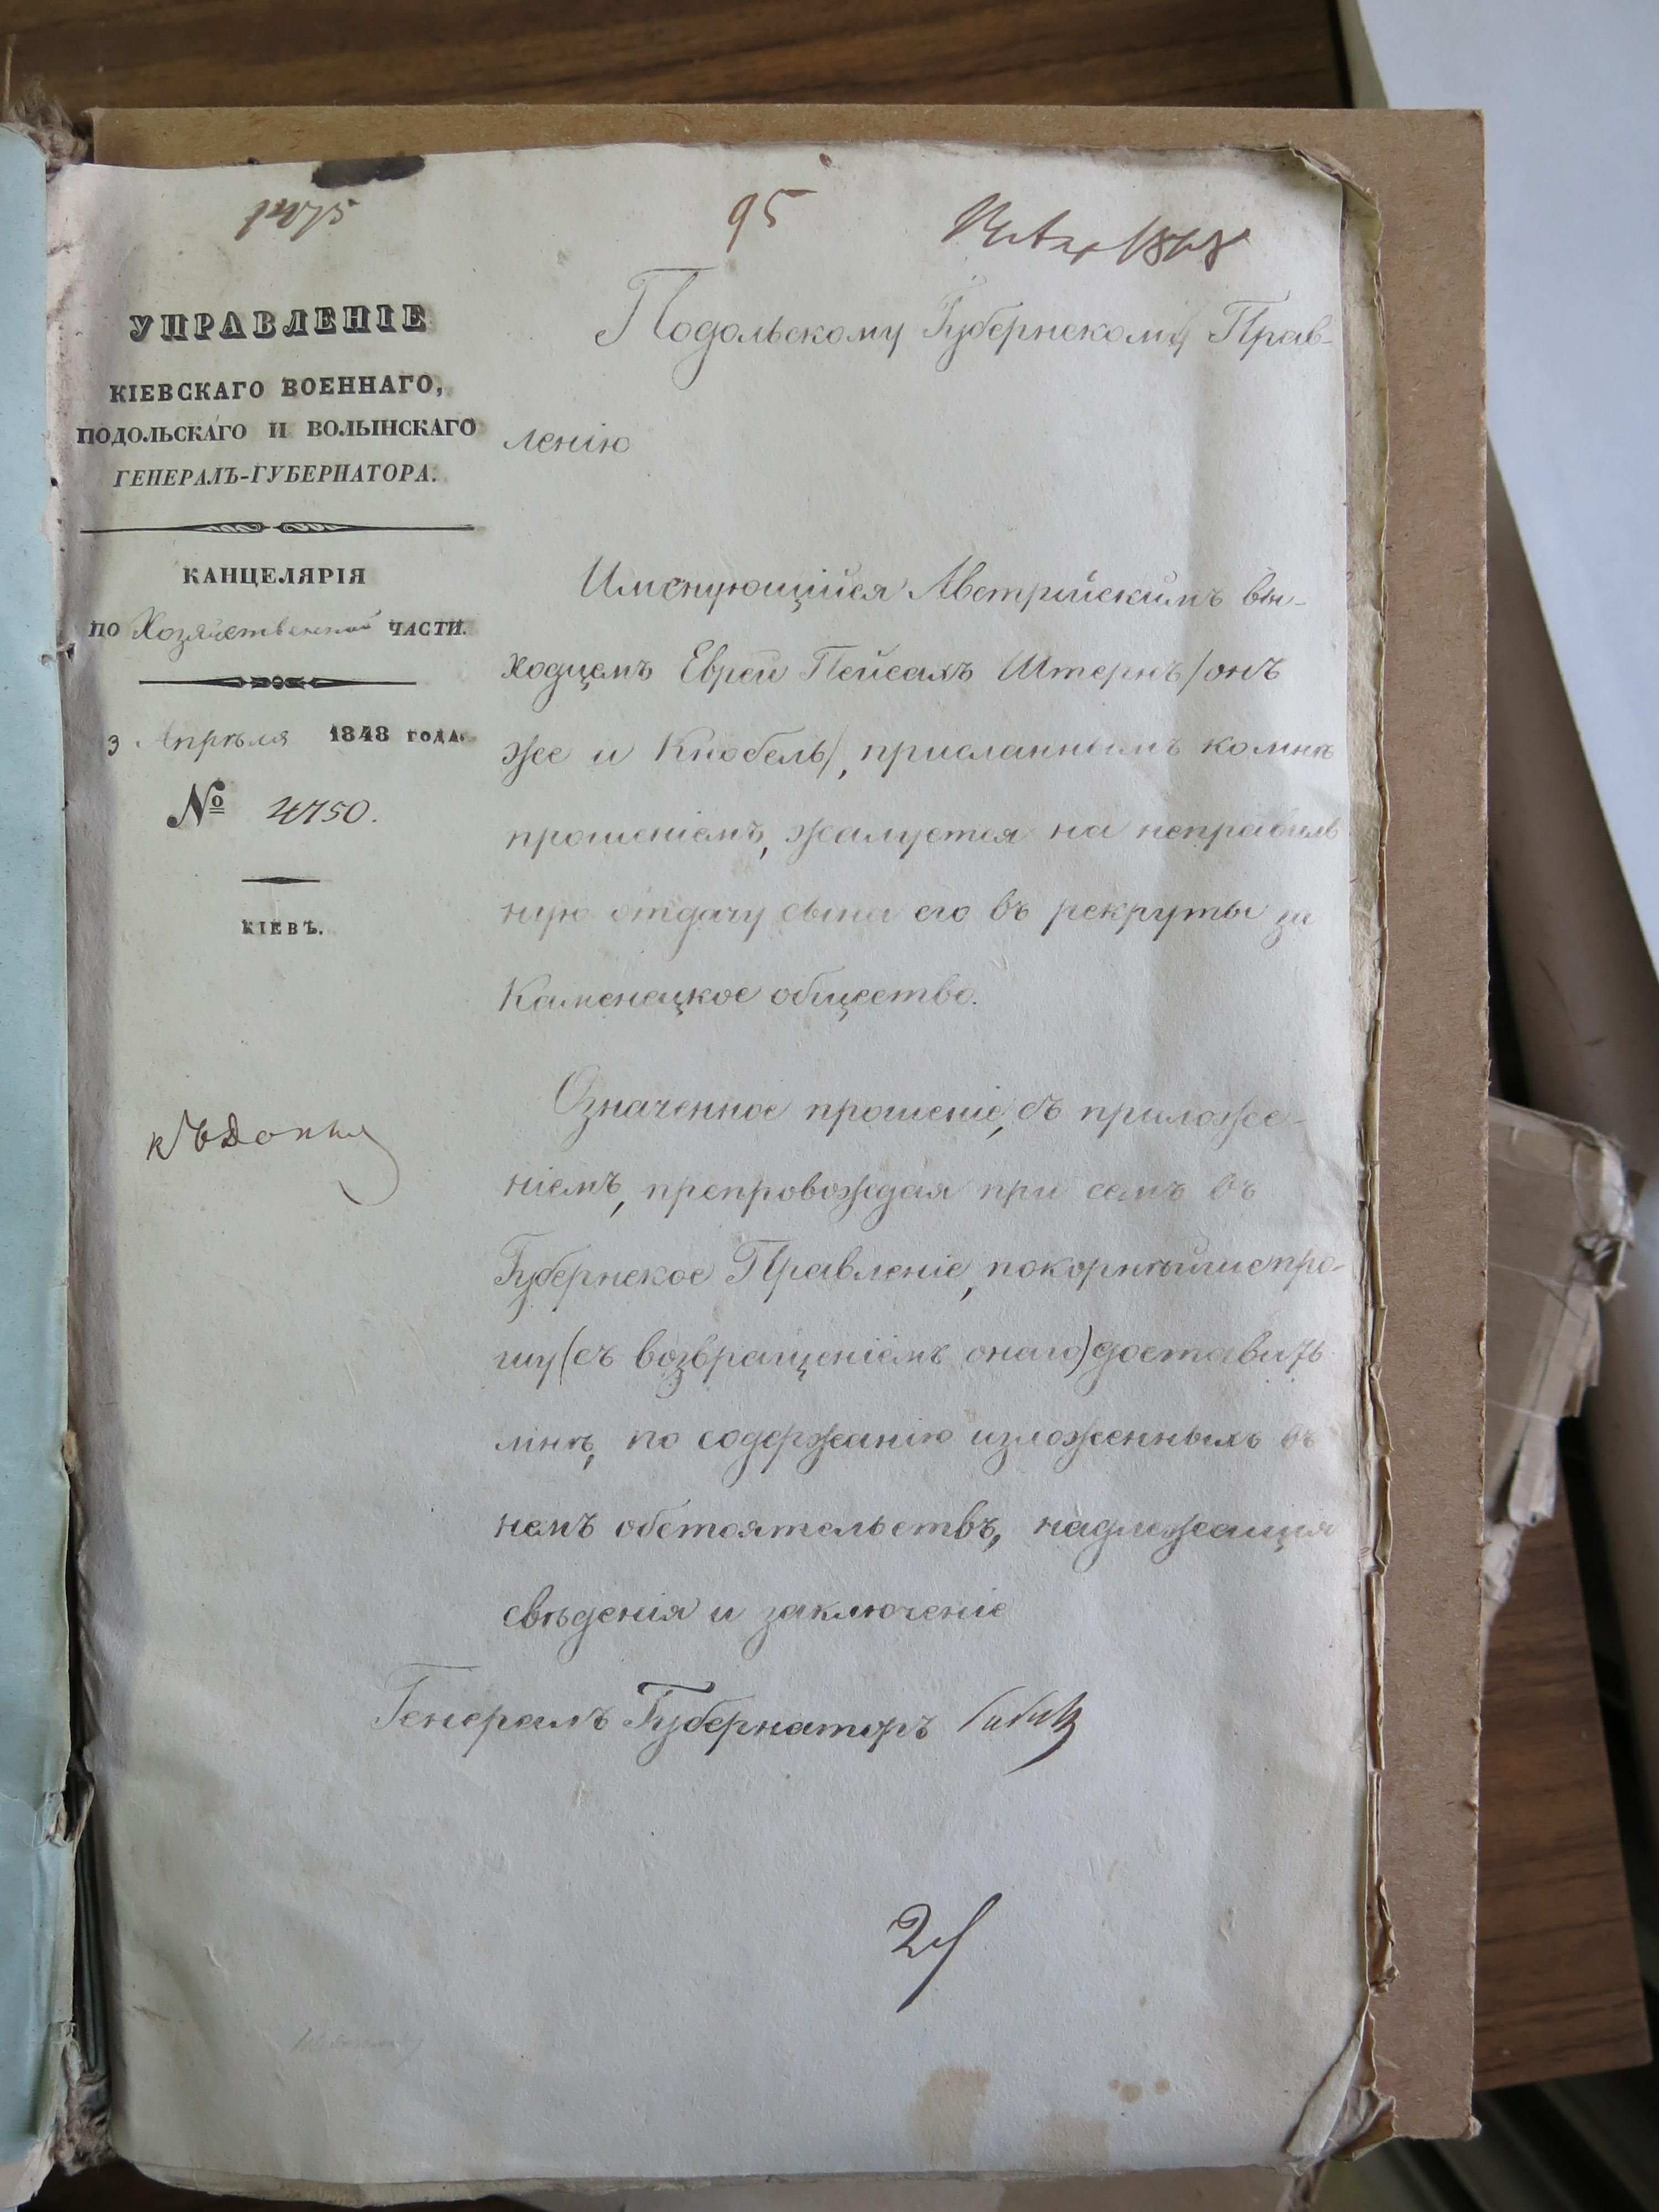 95
УПРАВЛЕНІЕ
КІЕВСКАГО ВОЕННАГО,
ПОДОЛЬСКАГО И ВОЛЫНСКАГО
ГЕНЕРАЛЪ-ГУБЕРНАТОРА.
КАНЦЕЛЯРІЯ
ПО Хозяйственной ЧАСТИ.
3 Апрѣля 1848 ГОДА.
№ 4750.
КІЕВЪ.
Подольскому Губернскому Прав-
ленію
Именующійся Австрійскимъ вы-
ходцемъ Еврей Пейсахъ Штернъ /онъ
же и Кнобель/, присланнымъ ко мнѣ
прошеніемъ, жалуется на неправиль
ную отдачу сына его въ рекруты за
Каменецкое общество.
Означенное прошеніе, съ приложе-
ніемъ, препровождая при семъ въ
Губернское Правленіе, покорнѣйше про-
шу (съ возвращеніемъ онаго) доставить
мнѣ, по содержанію изложенныхъ въ
немъ обстоятельствъ, надлежащія
свѣденія и заключеніе
Генералъ Губернаторъ Бибиковъ